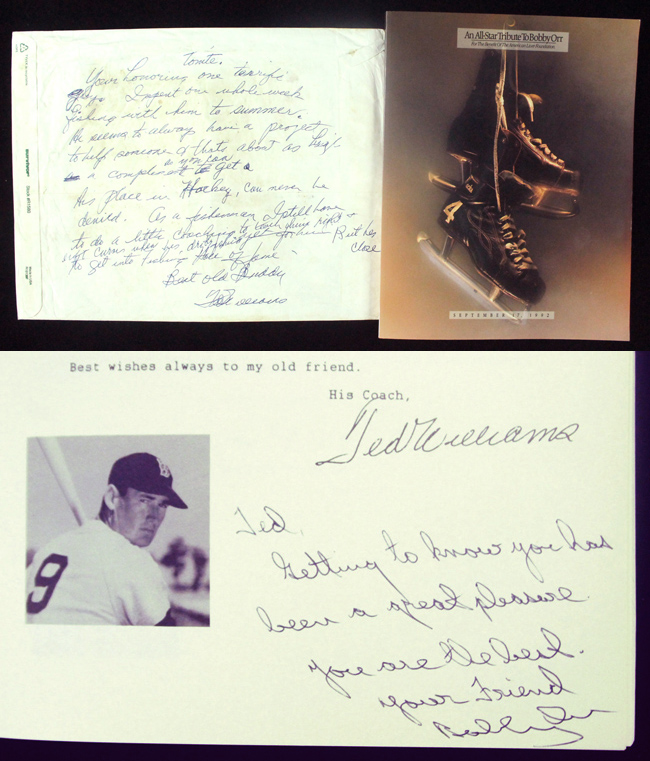 tonite.
Your honoring one terrific
guy. I spent one whole week
fishing with him to summer.
He seems to always have a project
to help someone & thats about as high
a compliment as you can get
His place in Hockey, can never be
denied. As a fisherman I still have
to do a little coaching to
But hes close
to get into fishing Hall of fame
Best old Buddy
Ted Williams
An All-Star Tribute To Bobby Orr
For The Benefit Of The American Liver Foundation
4
SEPTEMBER 17, 1992
Best wishes always to my old friend.
His Coach,
Ted Williams
9
Ted,
Getting to know you has
been a great pleasure.
You are the best.
Your Friend
Bobby Orr